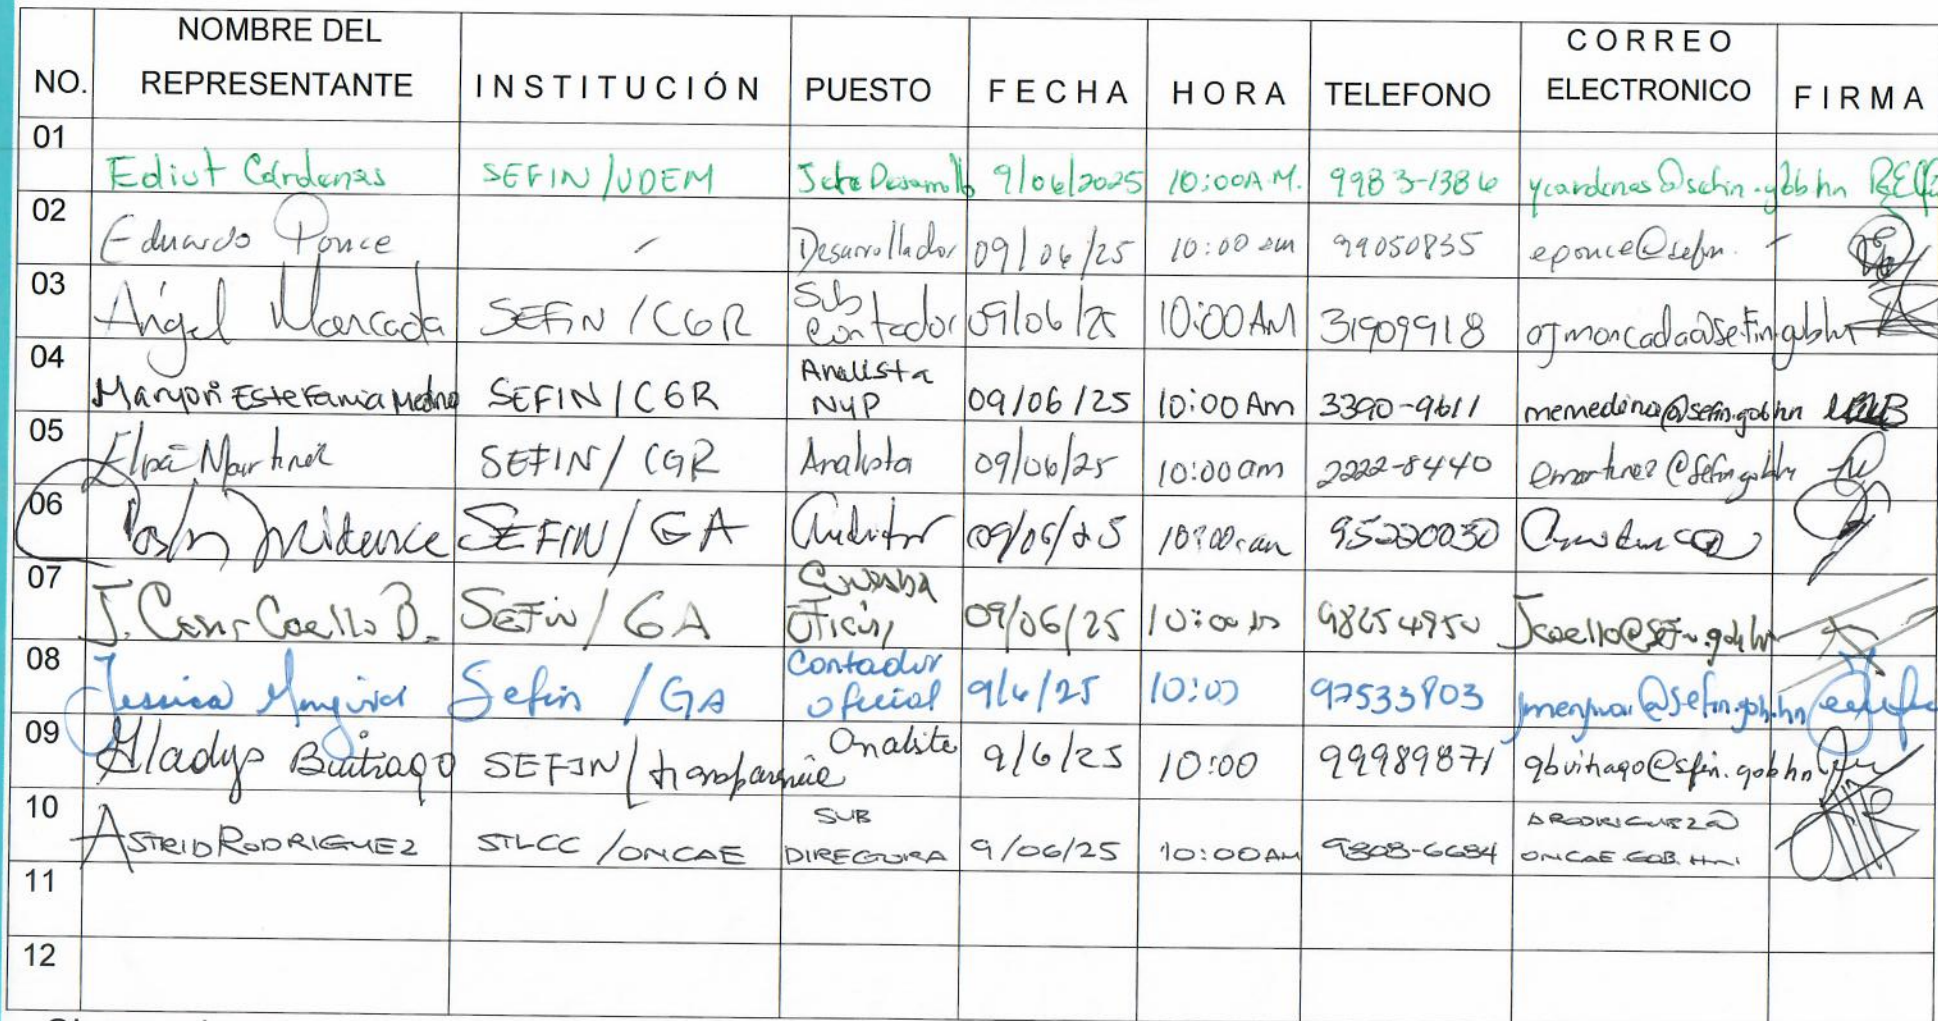 NO. NOMBRE DEL REPRESENTANTE INSTITUCIÓN PUESTO FECHA HORA TELEFONO CORREO ELECTRONICO FIRMA
01 Ediut Cárdenas SEFIN/UDEM Jefe Desarrollo 9/06/2025 10:00A.M. 9983-1386 ycardenas@sefin.gob.hn
02 Eduardo Ponce - Desarrollador 09/06/25 10:00 am 99050835 eponce@sefin. -
03 Ángel Moncada SEFIN/CGR Sub Contador 09/06/25 10:00AM 31909918 ajmoncada@sefin.gob.hn
04 Maryori Estefania Medina SEFIN/CGR Analista NyP 09/06/25 10:00Am 3390-9611 memedina@sefin.gob.hn
05 Elba Martinez SEFIN/CGR Analista 09/06/25 10:00am 2222-8440 emartinez@sefin.gob.hn
06 Midence SEFIN/GA Auditor 09/06/25 10:00am 95220030
07 J. Cesar Coello B. SEFIN/GA 09/06/25 10:00 98254950 Jcoello@sefin.gob.hn
08 Jessica Menjivar Sefin/GA Contador oficial 9/6/25 10:00 97533903 jmenjivar@sefin.gob.hn
09 Gladys Buitrago SEFIN/transparencia Analista 9/6/25 10:00 99989871 gbuitrago@sefin.gob.hn
10 ASTRID RODRIGUEZ STLCC/ONCAE SUB DIRECTORA 9/06/25 10:00AM 9808-6684 ARODRIGUEZ@ONCAE.GOB.HN
11
12